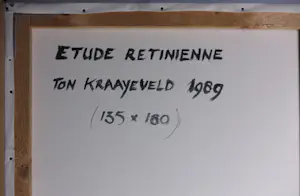 ETUDE RETINIENNE
TON KRAAYEVELD 1989
(135 x 180)